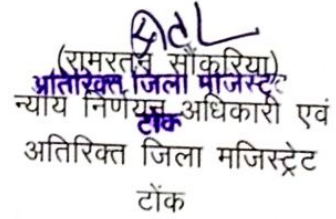 (रामरतन सौंकरिया)
अतिरिक्त जिला मजिस्ट्रेट
न्याय निर्णयन अधिकारी एवं
टोंक
अतिरिक्त जिला मजिस्ट्रेट
टोंक